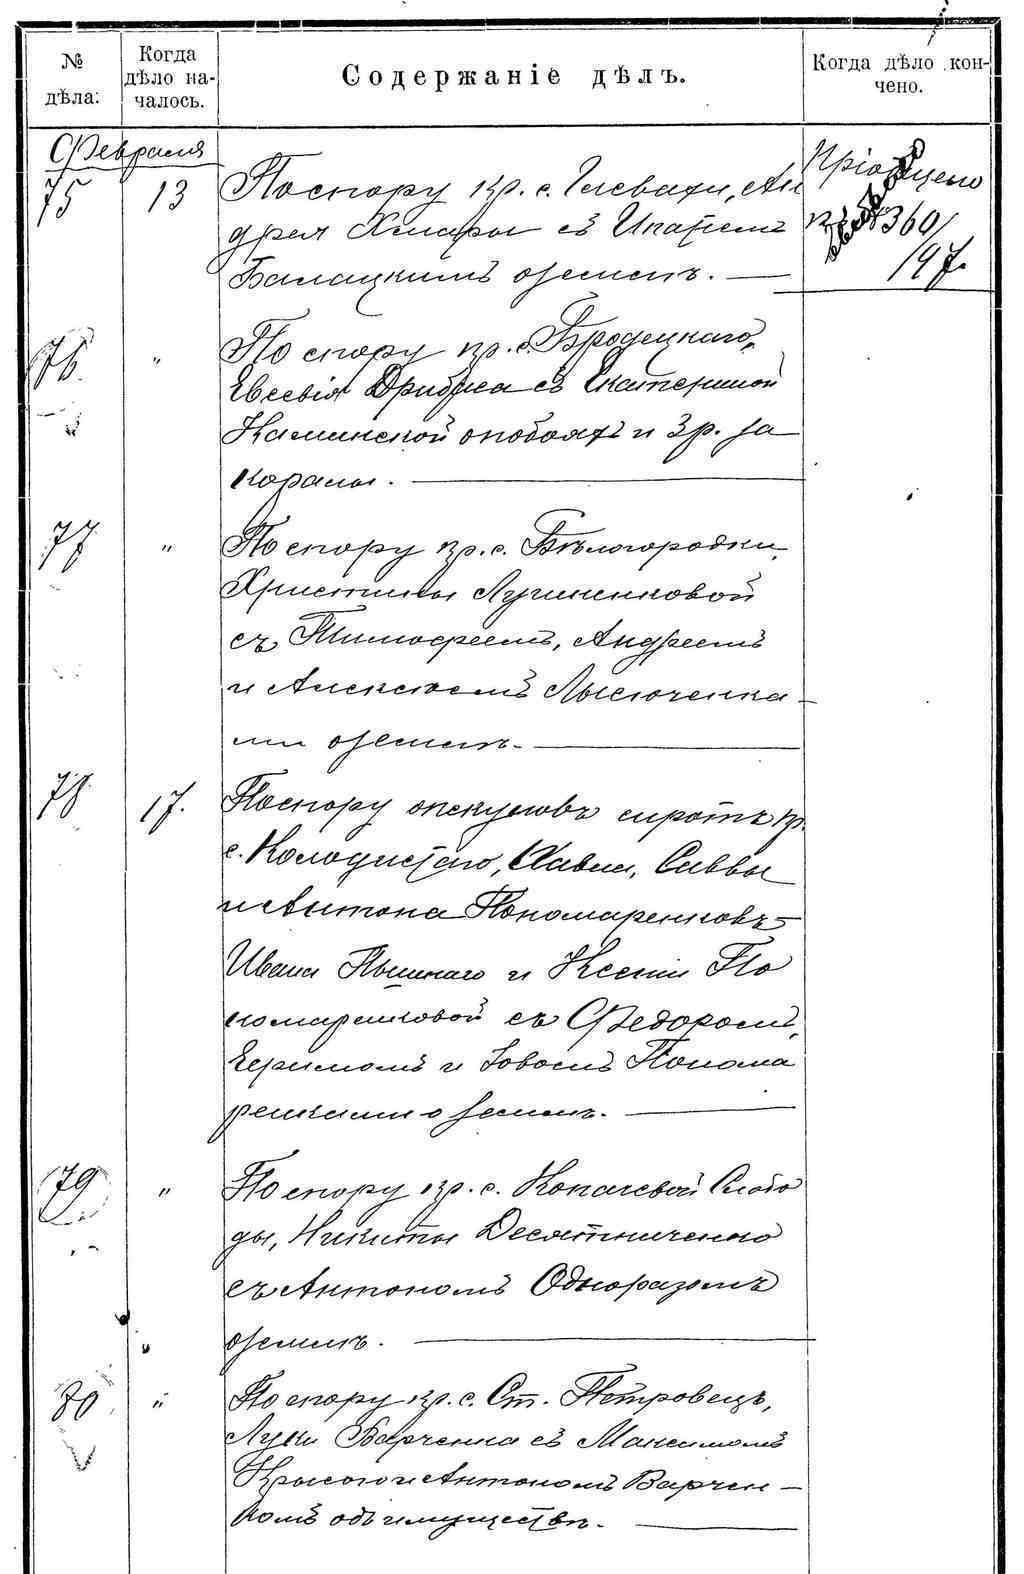 № дѣла:
Когда дѣло на-
чалось.
Содержаніе дѣлъ.
Когда дѣло кон-
чено.
Февраля
75 13 По спору кр. с. Глевахи, Ан
дрея Хмары съ Ипатіем
Балацкимъ о землѣ. —
Пріобщено
къ № 360/
197.
76 " По спору кр. с. Бродецкаго,
Евсевія с Екатериной
Каминской о побояхъ и 3 р. за
коралы. —
77 " По спору кр. с. Бѣлогородки,
Христины
съ Тимофеемъ, Андреемъ
и Алексѣемъ Лысюченка-
ми о землѣ. —
78 17. По спору опекуновъ сиротъ кр.
с. Колодистаго, Павла, Саввы
и Антона Пономаренковъ-
Ивана Пышнаго и Ксеніи По
номаренковой съ Федоромъ,
Ефимомъ и Іовомъ Понома
ренками о землѣ. —
79 " По спору кр. с. Копачевой Слобо
ды, Никиты Десятниченко
съ Антономъ Одноразомъ
о землѣ. —
80 " По спору кр. с. Ст. Петровецъ,
Луки Варченка съ Максимомъ
Крысою и Антономъ Варчен-
комъ объ имуществѣ. —